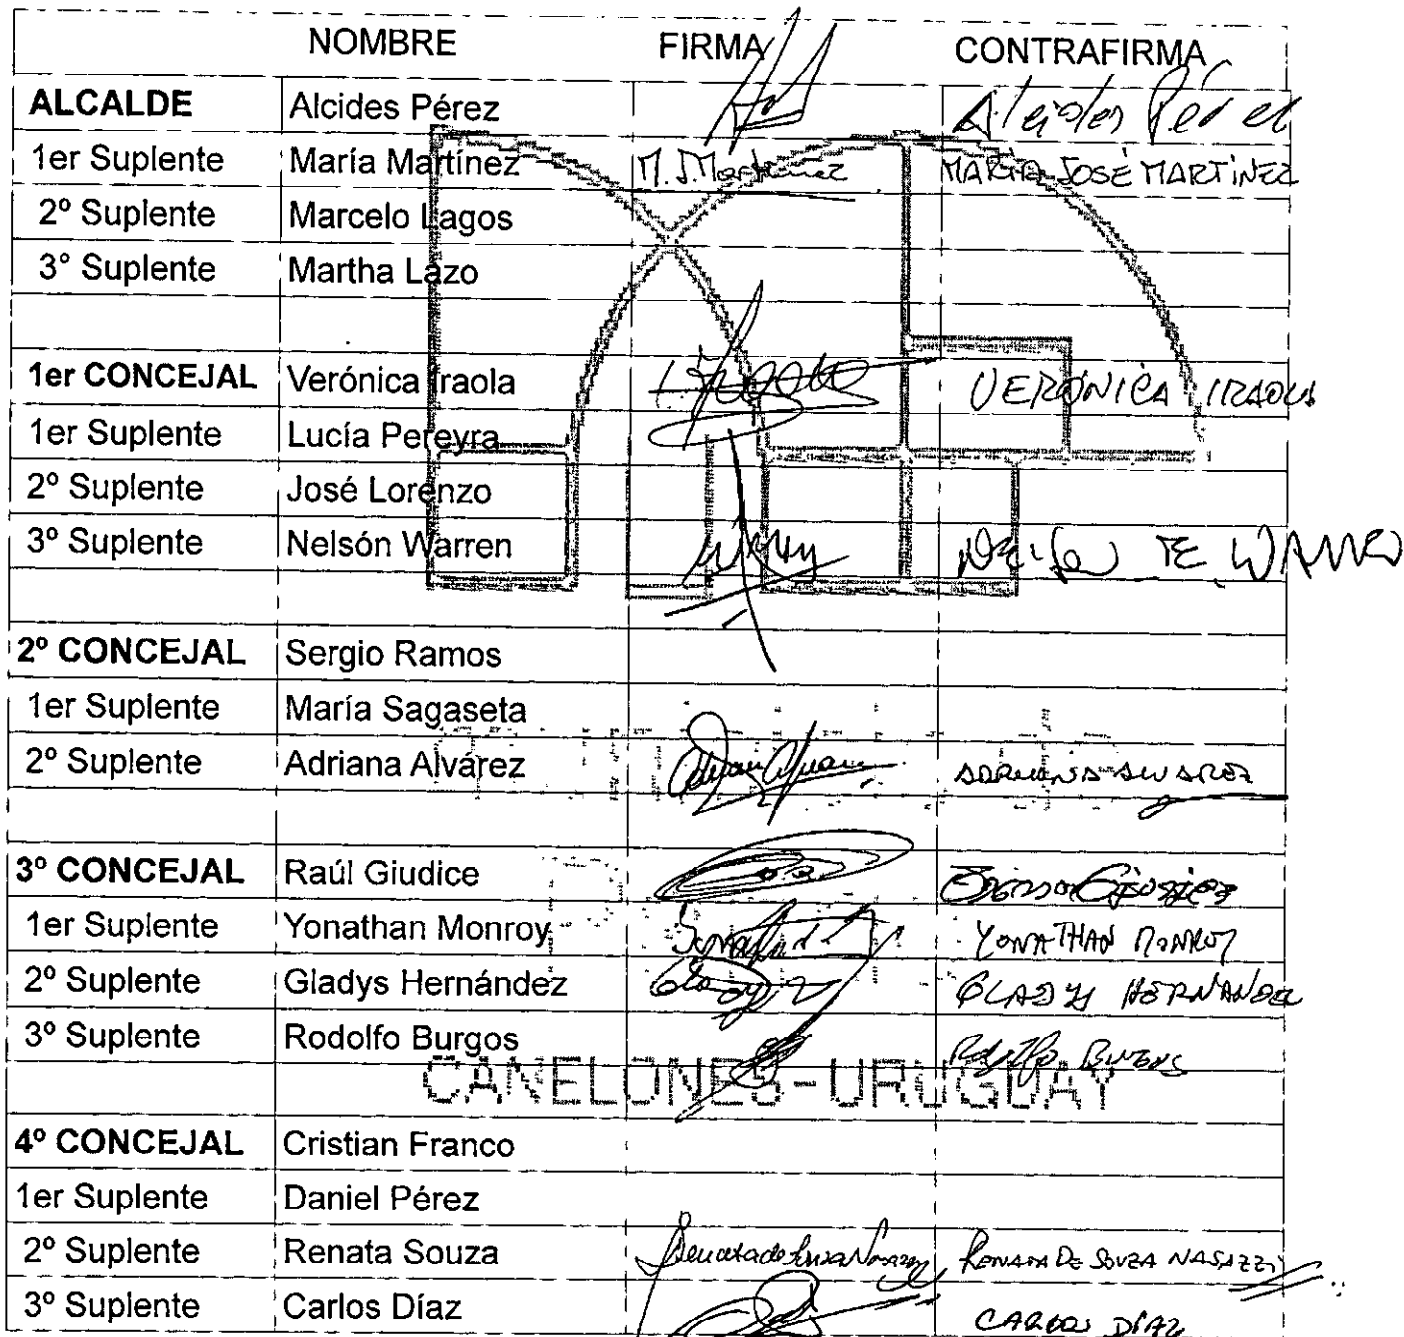 NOMBRE FIRMA CONTRAFIRMA
ALCALDE Alcides Pérez Alcides Pérez
1er Suplente María Martínez M. J. Martínez MARÍA JOSÉ MARTÍNEZ
2º Suplente Marcelo Lagos
3° Suplente Martha Lazo
1er CONCEJAL Verónica Iraola VERÓNICA IRAOLA
1er Suplente Lucía Pereyra
2º Suplente José Lorenzo
3º Suplente Nelsón Warren
2º CONCEJAL Sergio Ramos
1er Suplente María Sagaseta
2º Suplente Adriana Alvárez ADRIANA ALVAREZ
3º CONCEJAL Raúl Giudice
1er Suplente Yonathan Monroy YONATHAN MONROY
2º Suplente Gladys Hernández GLADYS HERNANDEZ
3º Suplente Rodolfo Burgos Rodolfo Burgos
CANELONES-URUGUAY
4º CONCEJAL Cristian Franco
1er Suplente Daniel Pérez
2º Suplente Renata Souza Renata de Souza Nasazzi RENATA DE SOUZA NASAZZI
3º Suplente Carlos Díaz CARLOS DÍAZ